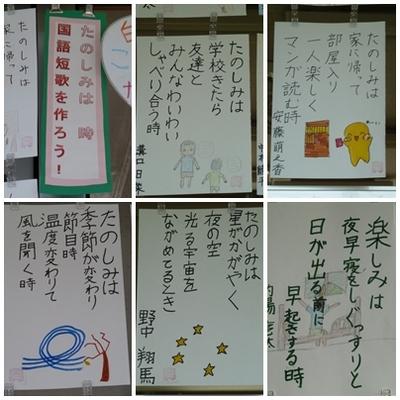 たのしみは
家に帰って
たのしみは 時
国語短歌を作ろう！
たのしみは
学校きたら
みんなわいわい
友達と
しゃべり合う時
溝口日菜
たのしみは
家に帰って
部屋入り
一人楽しく
マンガ読む時
安藤萌々香
たのしみは
季節が変わり
節目時
温度変わりて
風を聞く時
たのしみは
星がかがやく
夜の空
光る宇宙を
ながめてるとき
野中 翔馬
楽しみは
夜早寝をしぐっすりと
日が出る前に
早起きする時